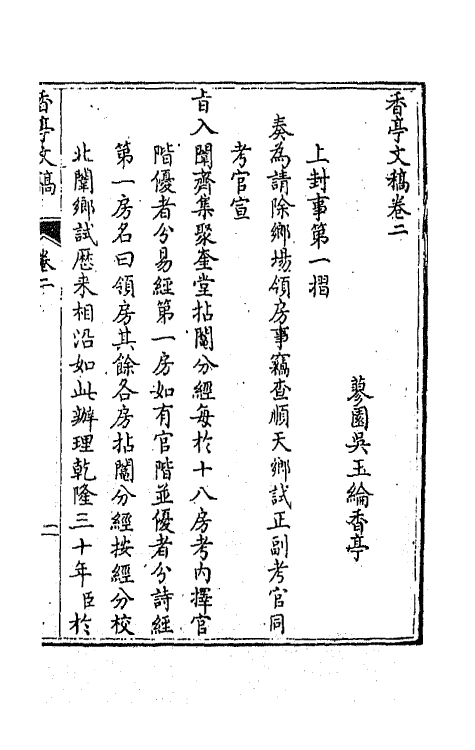 香亭文稿卷二
蓼園吳玉綸香亭
上封事第一摺
奏為請除鄉場領房事竊查順天鄉試正副考官同
考官宣
旨入闈齊集聚奎堂拈鬮分經每於十八房考內擇官
階優者分易經第一房如有官階並優者分詩經
第一房名曰領房其餘各房拈鬮分經按經分校
北闈鄉試歷来相沿如此辦理乾隆三十年臣於
香亭文稿
卷二
二